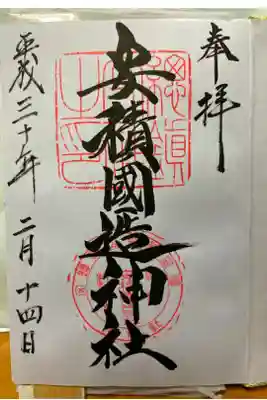 奉拝
安積國造神社
平成三十年二月十四日